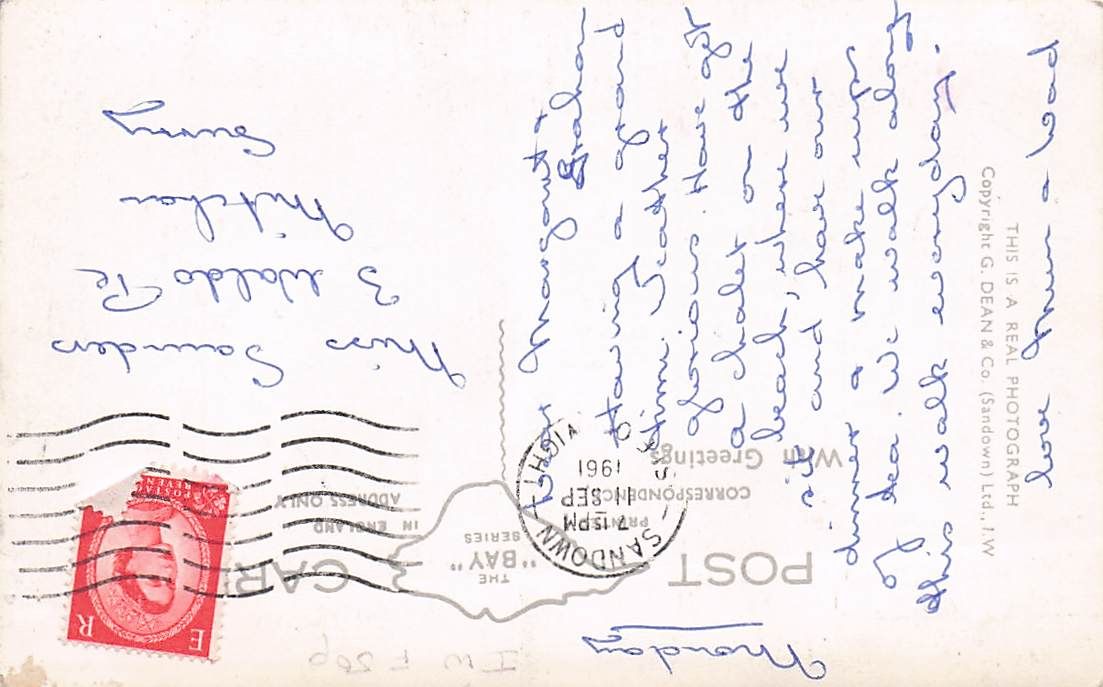 POST CARD
THE
"BAY"
SERIES
With Greetings
CORRESPONDENCE
PRINTED
IN ENGLAND
ADDRESS ONLY
SANDOWN
7.15PM
11 SEP
1961
E R
POSTAGE
I W F 50p
Monday
Dear Margaret &
Graham
Having a grand
time. Weather
glorious. Have got
a chalet on the
beach, where we
sit and have our
dinner & make cups
of tea. We walk along
this walk everyday.
love Mum & Dad
Miss Saunders
3 Waldo Pl
Mitcham
Surrey
THIS IS A REAL PHOTOGRAPH
Copyright G. DEAN & Co. (Sandown) Ltd., I.W